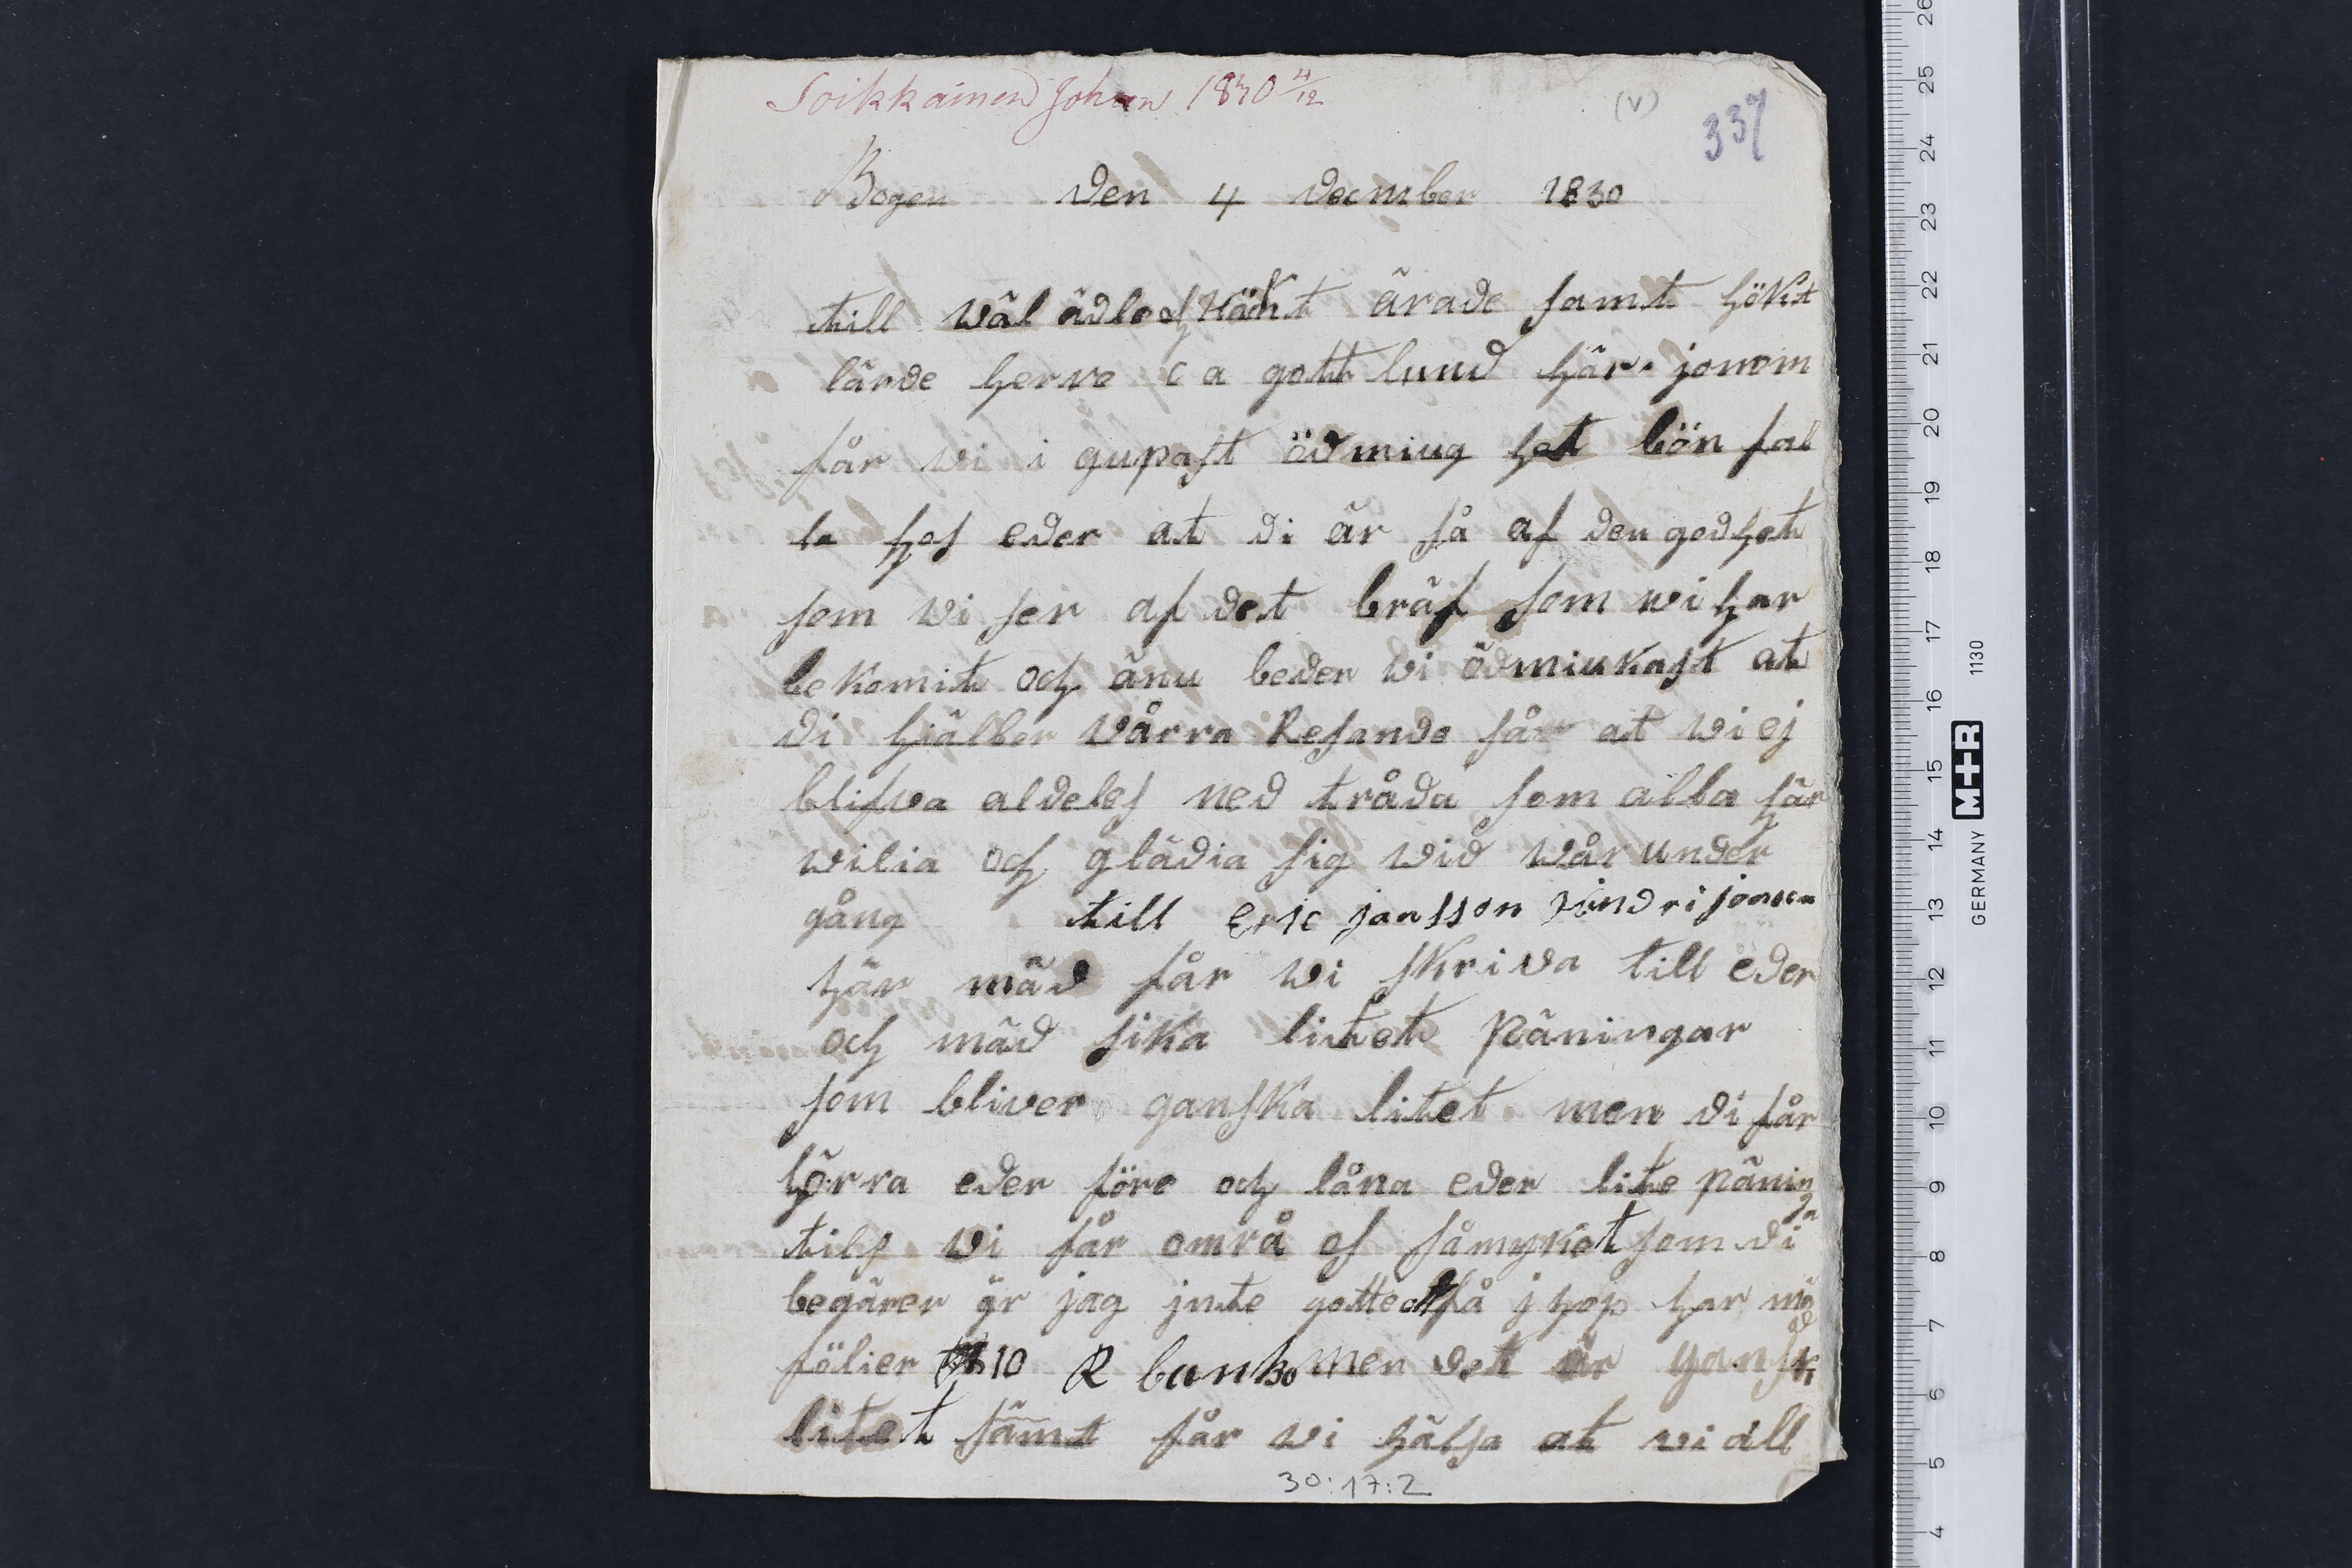 Soikkainen Johan 1830 4/12
(v)
337
Bogen den 4 decmber 1830
till wäl ädle och Höckt ärade samt hökt
lärde herre C a gottlund här jonom
får vi i gupast ödmiug het bön fal
la hos eder at di är så af den godhet
som wi ser af det bräf som wi har
bekomit och änu beder wi ödmiukast at
di hjälber wårra Resande får at wi ej
blifwa aldeles ned tråda som alla här
wilia och glädia sig wid wår under
gång till Eric jansson
här mäd får wi skriva till eder
och mäd sika litet päningar
som bliver ganska litet men di får
hörra eder före och låna eder lite pänin
ga
tils wi får områ os såmyket som di
begärer är jag jnte gotte att få j hop har mä
ad
fölier 10 R banko men det är gansk
litet sämt får wi hälsa at wi all
30:17:2
26
25
24
23
22
21
20
19
18
17
16
15
14
13
12
11
10
9
8
7
6
5
4
GERMANY M+R 1130